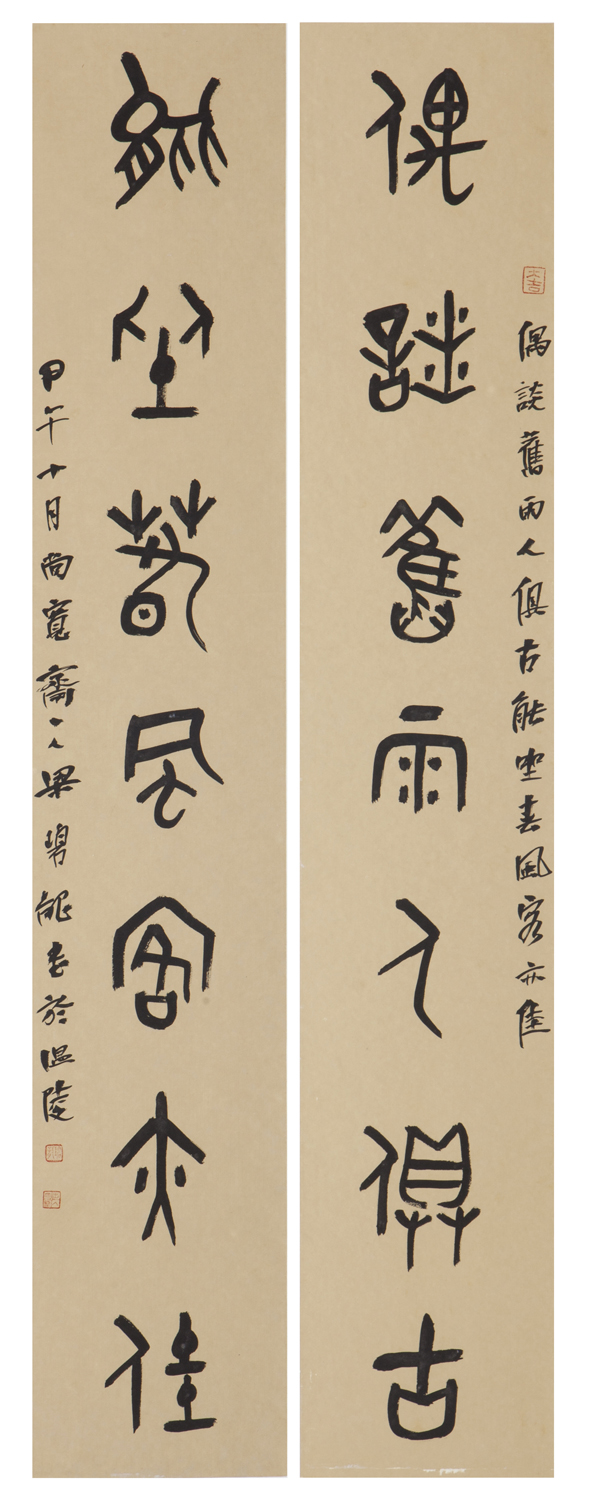 偶談舊雨人俱古
能坐春風客亦佳
偶談舊雨人俱古能坐春風客亦佳
甲午十月尚寬齋主人梁碧書於温陵
大吉